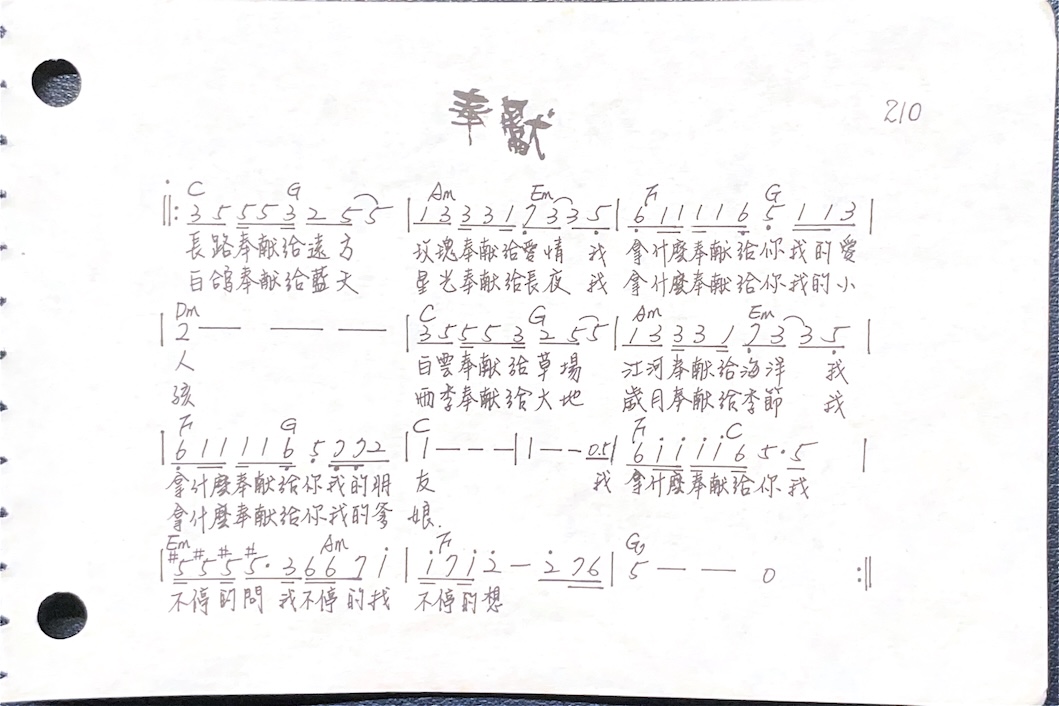 奉獻
210
C G Am Em F G
‖: 3 5 5 5 3 2 5 5 | 1 3 3 3 1 7 3 3 5 | 6 1 1 1 1 6 5 1 1 3 |
長路奉献給遠方 玫瑰奉献給愛情 我 拿什麼奉献給你我的愛
白鴿奉献給藍天 星光奉献給長夜 我 拿什麼奉献給你我的小
Dm C G Am Em
| 2 — — — | 3 5 5 5 3 2 5 5 | 1 3 3 3 1 7 3 3 5 |
人 白雲奉献給草場 江河奉献給海洋 我
孩 雨季奉献給大地 歲月奉献給季節 我
F G C F C
| 6 1 1 1 1 6 5 7 7 2 | 1 - - - | 1 - - 0 5 | 6 i i i i 6 5 · 5 |
拿什麼奉献給你我的朋 友 我 拿什麼奉献給你我
拿什麼奉献給你我的爹 娘.
Em Am F G
| #5 #5 #5 #5 · 3 6 6 7 i | i 7 i 2 — 2 7 6 | 5 — — 0 :‖
不停的問 我不停的找 不停的想